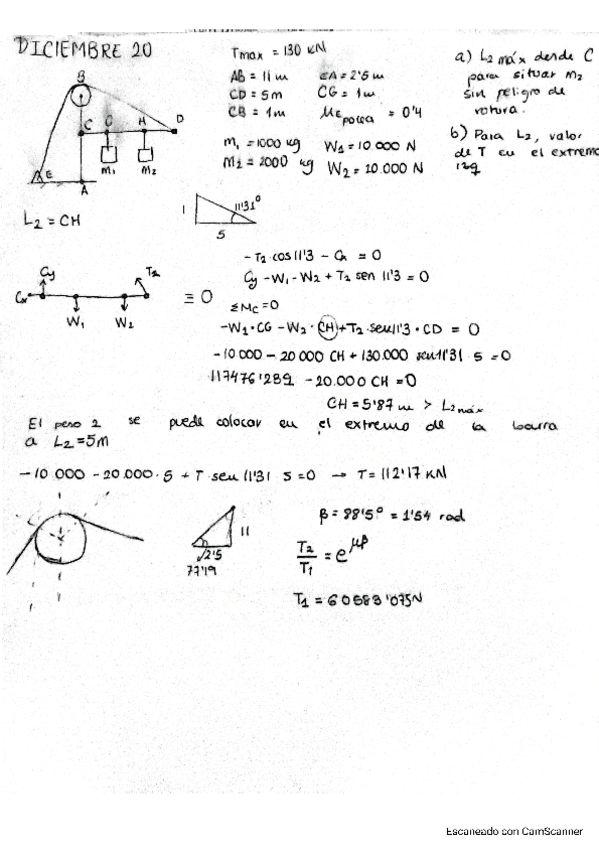 DICIEMBRE 20
Tmax = 130 KN
AB = 11 m EA = 2'5 m
CD = 5 m CG = 1 m
CB = 1 m μE polea = 0'4
m1 = 1000 kg W1 = 10.000 N
M2 = 2000 kg W2 = 10.000 N
a) L2 máx desde C
para situar m2
sin peligro de
rotura.
b) Para L2, valor
de T en el extremo
izq
B
C G H D
M1 M2
E
A
L2 = CH
1
11'31°
5
Cy T2
Cx
W1 W2
≡ 0
- T2 cos 11'3 - Cx = 0
Cy - W1 - W2 + T2 sen 11'3 = 0
ΣMC = 0
-W1·CG - W2·CH + T2·sen 11'3·CD = 0
-10 000 - 20 000 CH + 130.000 sen 11'31 5 = 0
117476'289 - 20.000 CH = 0
CH = 5'87 m > L2 máx
El peso 2 se puede colocar en el extremo de la barra
a L2 = 5m
-10 000 - 20 000·5 + T sen 11'31 5 = 0 → T = 112'17 KN
11
2'5
77'19
β = 88'5° = 1'54 rad
T2/T1 = e^μβ
T1 = 60583'075N
Escaneado con CamScanner